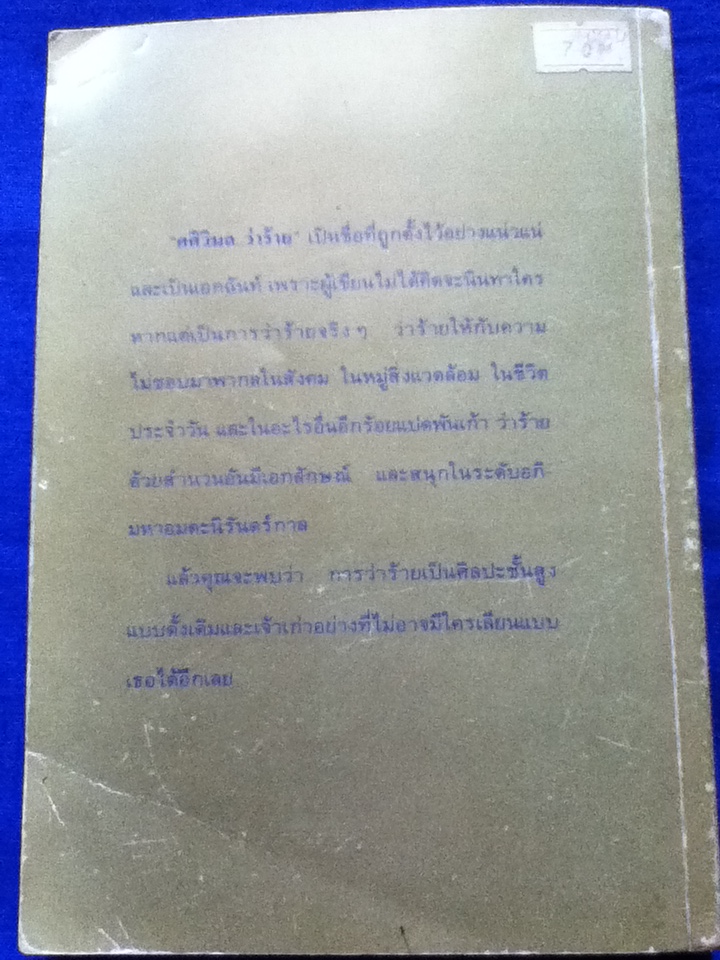 "ศศิวิมล ว่าร้าย" เป็นชื่อที่ถูกตั้งไว้อย่างแน่วแน่
และเป็นเอกฉันท์ เพราะผู้เขียนไม่ได้คิดจะนินทาใคร
หากแต่เป็นการว่าร้ายจริง ๆ ว่าร้ายให้กับความ
ไม่ชอบมาพากลในสังคม ในหมู่สิ่งแวดล้อม ในชีวิต
ประจำวัน และในอะไรอื่นอีกร้อยแปดพันเก้า ว่าร้าย
ด้วยสำนวนอันมีเอกลักษณ์ และสนุกในระดับอภิ-
มหาอมตะนิรันดร์กาล
แล้วคุณจะพบว่า การว่าร้ายเป็นศิลปะชั้นสูง
แบบดั้งเดิมและเจ้าเก่าอย่างที่ไม่อาจมีใครเลียนแบบ
เธอได้อีกเลย